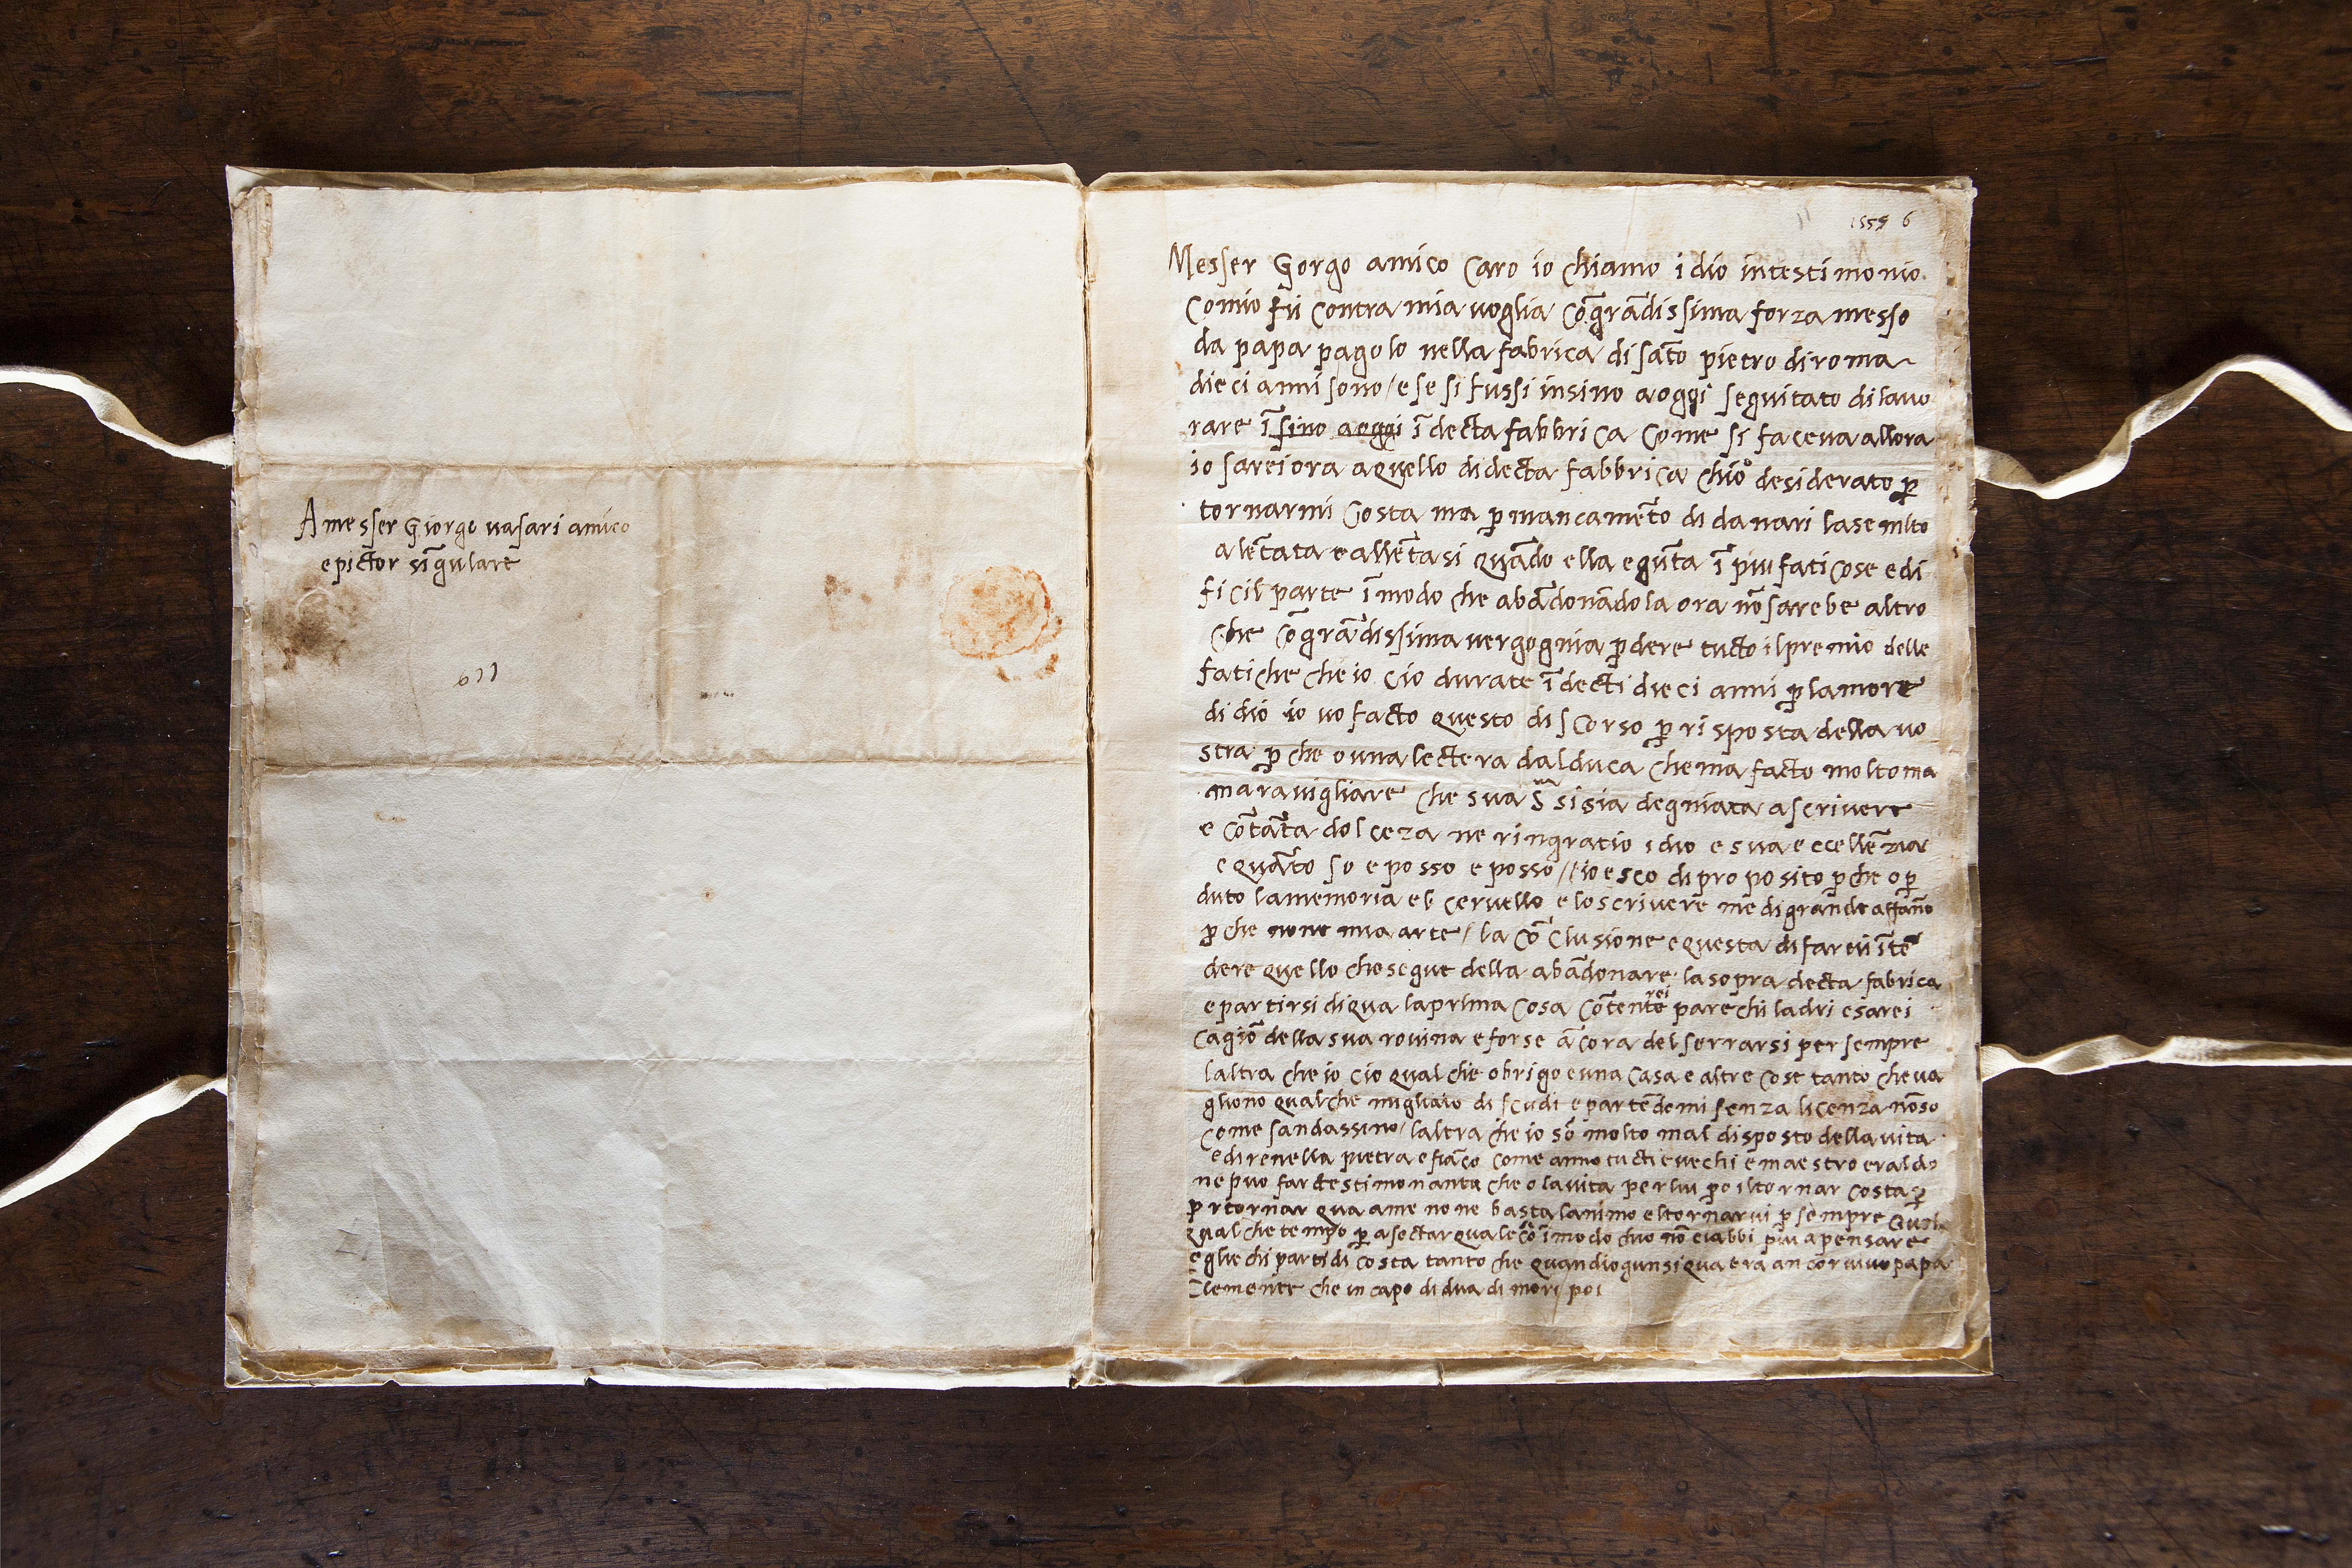 A messer Giorgo vasari amico
e pictor sĩgulare
1555 6
Messer Gorgo amico caro io chiamo idio in testimonio
com io fu contra mia voglia cõ grãdissima forza messo
da papa pagolo nella fabrica di sãto pietro di roma
dieci anni sono / e se si fussi insino a oggi seguitato di lavo
rare ĩsino a oggi ĩ decta fabbrica come si faceva allora
io sarei ora a quello di decta fabbrica ch'io desiderato p̱
tornarmi costa ma p̱ mancamẽto di danari la se mlto
alẽtata e allẽtasi quãdo ella e gũta ĩ piu faticose e di
ficil parte ĩ modo che abãdonãdola ora nõ sarebe altro
che cõ grãdissima vergognia p̱dere tucto il premio delle
fatiche che io c io durate ĩ decti dieci anni p̱ l amore
di dio io vo facto questo discorso p̱ risposta della vo
stra p̱che o una lectera dal duca che m a facto molto ma
maravigliare che sua S si sia degniata a scrivere
e cõ tãta dolceza ne ringratio idio e sua eccellẽzia
e quãto so e posso e posso / io esco di proposito p̱che o p̱
duto la memoria e l cervello e lo scrivere m e di grande affãno
p̱che none mia arte / la cõclusione e questa di farvi ĩtẽ
dere quello che segue dello abãdonare la sopra decta fabrica
e partirsi di qua la prima cosa cõtenterei parechi ladri e sarei
cagiõ della sua rovina e forse ãcora del serrarsi per sempre
l altra che io c io qualche obrigo e una casa e altre cose tanto che va
gliono qualche migliaio di scudi e partẽdomi senza licenza nõ so
come s andassino / l altra che io sõ molto mal disposto della vita
e di renella pietra e fiãco come anno tucti e vechi e maestro eraldo
ne puo far testimonanza che o la vita per lui p̱o il tornar costa p̱
p̱ rtornar qua a me none basta l animo e l tornarvi p̱ sempre
qualche tempo p̱ asectar qua le cõ ĩ modo ch io nõ ci abbi piu a pensare
e gli e ch i parti di costa tanto che quand io gunsi qua era ancor vivo papa
Clemente che in capo di dua di mori / poi